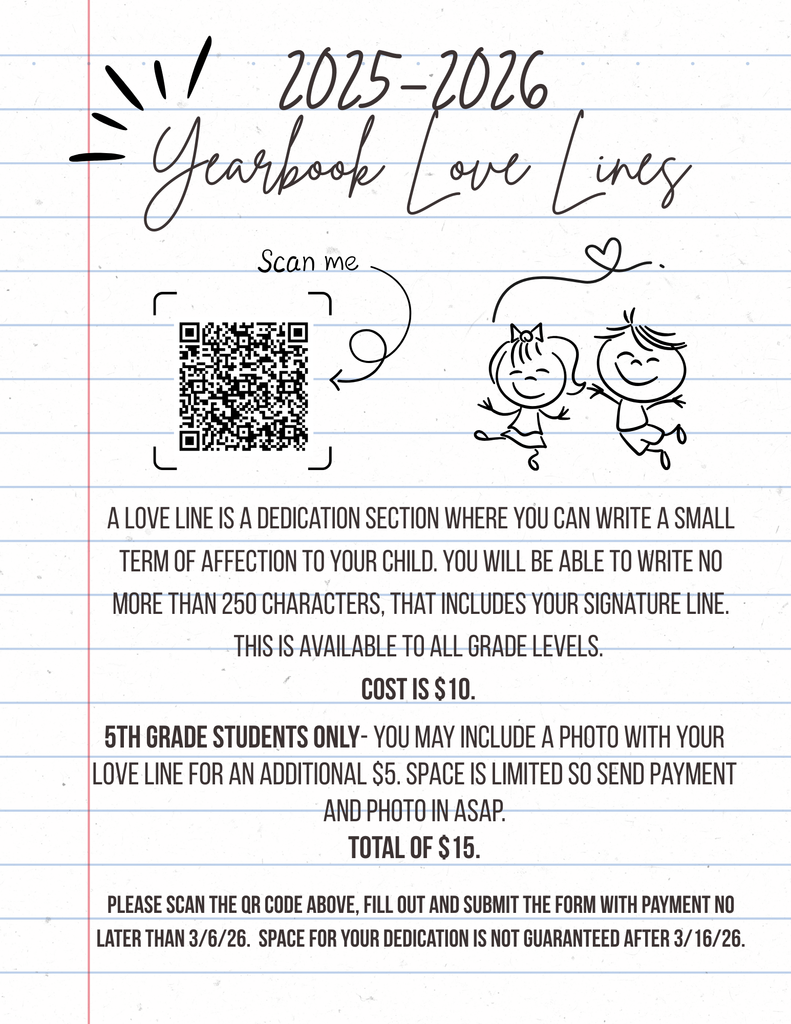 2025-2026
Yearbook Love Lines
Scan me
A LOVE LINE IS A DEDICATION SECTION WHERE YOU CAN WRITE A SMALL
TERM OF AFFECTION TO YOUR CHILD. YOU WILL BE ABLE TO WRITE NO
MORE THAN 250 CHARACTERS, THAT INCLUDES YOUR SIGNATURE LINE.
THIS IS AVAILABLE TO ALL GRADE LEVELS.
COST IS $10.
5TH GRADE STUDENTS ONLY- YOU MAY INCLUDE A PHOTO WITH YOUR
LOVE LINE FOR AN ADDITIONAL $5. SPACE IS LIMITED SO SEND PAYMENT
AND PHOTO IN ASAP.
TOTAL OF $15.
PLEASE SCAN THE QR CODE ABOVE, FILL OUT AND SUBMIT THE FORM WITH PAYMENT NO
LATER THAN 3/6/26. SPACE FOR YOUR DEDICATION IS NOT GUARANTEED AFTER 3/16/26.